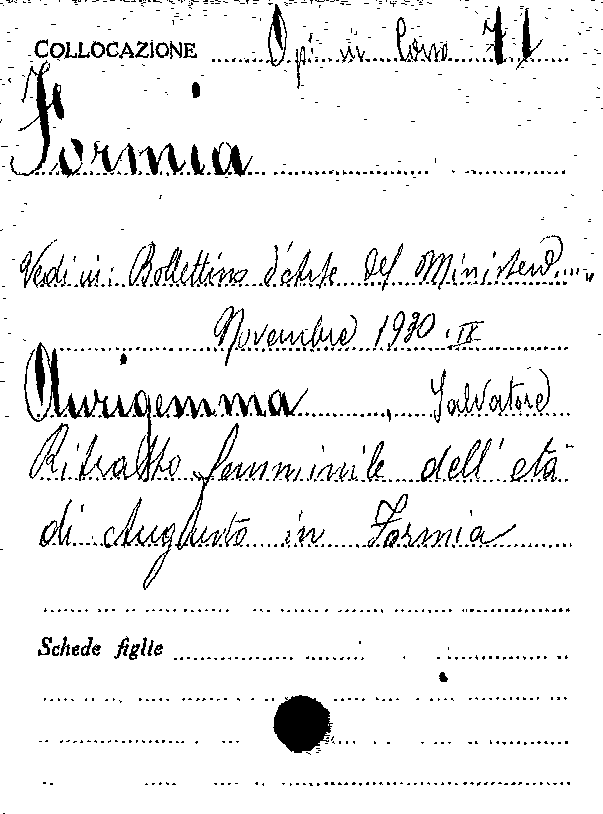 COLLOCAZIONE Op. in Corso 71
Formia
Vedi in: Bollettino d'Arte del Ministero....,,
Novembre 1930 - IX
Aurigemma, Salvatore
Ritratto femminile dell'età
di Augusto in Formia
Schede figlie